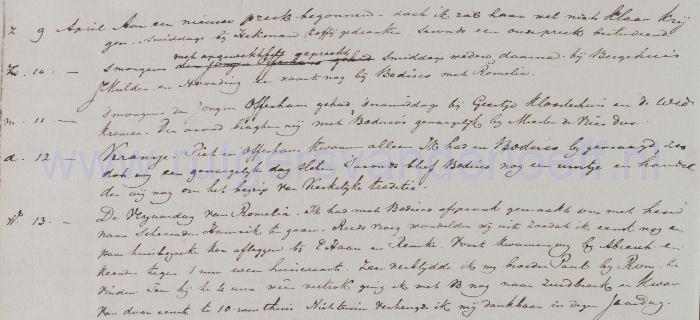 z 9 April Aan een nieuwe preek begonnen - doch ik zal haar wel niet klaar krij
gen. Smiddags bij Tekman koffij gedronken. Savonds een oude preek bestudeerd
Zo. 10. - Smorgens met opgewektheid gepreekt Smiddags nader daarna bij Bergehuis
J Mulder en Avonding en naart nog bij Bodisco met Romelia.
m. 11 - Smorgens den jongen Offerhaus gehad. Snamiddags bij Geertje Kloosterhuis en de Wed.
Kremer. Den avond bragten wij met Bodisco's genoegelijk bij Meel de Vries door.
d. 12 - Kransje Piet Offerhaus kwam alleen. Ik had er Bodisco bij gevraagd, zoo
dat wij een genoegelijk dag sleten. Savonds bleef Bodisco nog een uurtje en handel
den wij nog over het begrip van Kerkelijke traditie.
W. 13. - De Verjaardag van Romelia. Ik had met Bodisco afspraak gemaakt om met hem
naar Scheemder Hamrik te gaan. Reeds vroeg wandelden wij uit zoodat ik eerst nog een
paar huisbezoeken kon afleggen bij P Haan en Remke. Voort kwamen wij bij Abresch en
keerden tegen 1 uur weer huiswaart. Zeer verblijdde ik mij broeder Paul bij Rom. te
vinden. Toen hij te 4 uur weer vertrok ging ik met B nog naar Zuidbroek en kwam
van daar eerst te 10 uur thuis. Niettemin verheugde ik mij dankbaar in dezen Jaardag.
www.rutgersvanderloeff.nl